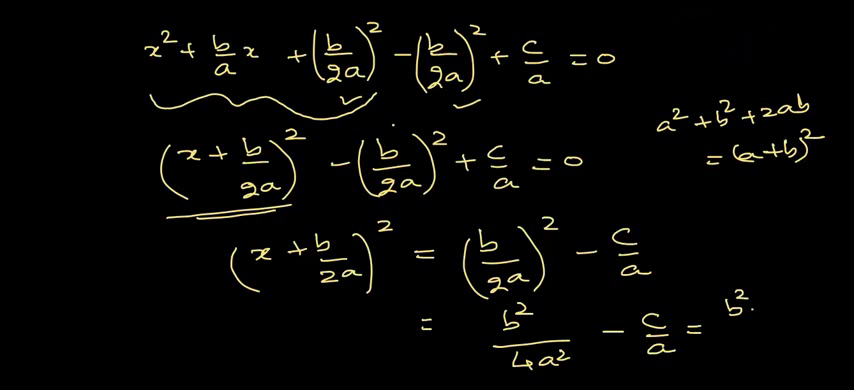 x² + b/a x + (b/2a)² - (b/2a)² + c/a = 0
a² + b² + 2ab
= (a+b)²
(x + b/2a)² - (b/2a)² + c/a = 0
(x + b/2a)² = (b/2a)² - c/a
= b²/4a² - c/a = b²